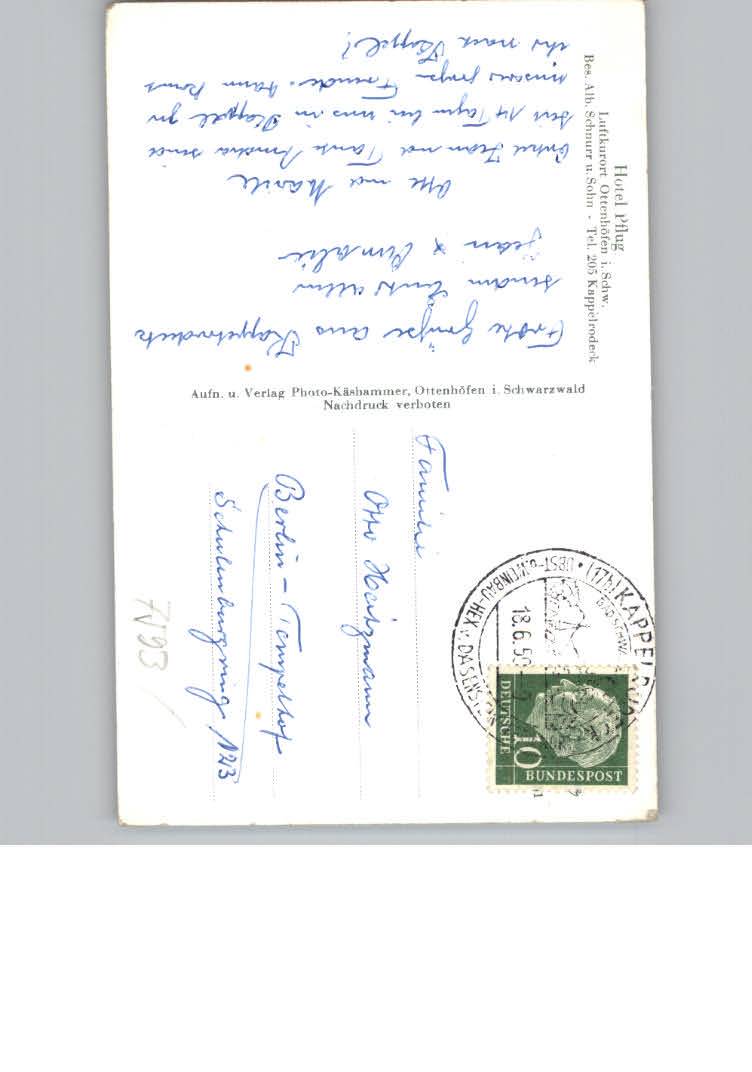 Hotel Pflug
Luftkurort Ottenhöfen i. Schw.
Bes. Alb. Schnurr u. Sohn - Tel. 205 Kappelrodeck
Frohe Grüße aus Kappelrodeck
senden Euch allen
Jean & Amalie
Otto und Marile
Onkel Jean und Tante Amalia sind
seit 14 Tagen bei uns in Kappel zu
unserer großen Freude. Wann kommt
ihr nach Kappel?
Aufn. u. Verlag Photo-Käshammer, Ottenhöfen i. Schwarzwald
Nachdruck verboten
Familie
Otto Heitzmann
Berlin - Tempelhof
Schulenburgring 123
7593 /
(17b) KAPPELR
OBST- u. WEINBAU - HEX V. DASENST
BAD SCHWA
18.6.59
DEUTSCHE
BUNDESPOST
10